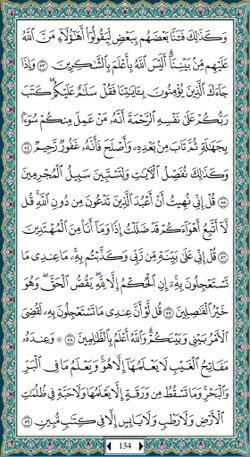 وَكَذَٰلِكَ فَتَنَّا بَعْضَهُم بِبَعْضٍ لِّيَقُولُوٓا۟ أَهَـٰٓؤُلَآءِ مَنَّ ٱللَّهُ
عَلَيْهِم مِّنۢ بَيْنِنَآ ۗ أَلَيْسَ ٱللَّهُ بِأَعْلَمَ بِٱلشَّـٰكِرِينَ ٥٣ وَإِذَا
جَآءَكَ ٱلَّذِينَ يُؤْمِنُونَ بِـَٔايَـٰتِنَا فَقُلْ سَلَـٰمٌ عَلَيْكُمْ ۖ كَتَبَ
رَبُّكُمْ عَلَىٰ نَفْسِهِ ٱلرَّحْمَةَ ۖ أَنَّهُۥ مَنْ عَمِلَ مِنكُمْ سُوٓءًۢا
بِجَهَـٰلَةٍ ثُمَّ تَابَ مِنۢ بَعْدِهِۦ وَأَصْلَحَ فَأَنَّهُۥ غَفُورٌ رَّحِيمٌ ٥٤
وَكَذَٰلِكَ نُفَصِّلُ ٱلْـَٔايَـٰتِ وَلِتَسْتَبِينَ سَبِيلُ ٱلْمُجْرِمِينَ
٥٥ قُلْ إِنِّى نُهِيتُ أَنْ أَعْبُدَ ٱلَّذِينَ تَدْعُونَ مِن دُونِ ٱللَّهِ ۚ قُل
لَّآ أَتَّبِعُ أَهْوَآءَكُمْ ۙ قَدْ ضَلَلْتُ إِذًا وَمَآ أَنَا۠ مِنَ ٱلْمُهْتَدِينَ
٥٦ قُلْ إِنِّى عَلَىٰ بَيِّنَةٍ مِّن رَّبِّى وَكَذَّبْتُم بِهِۦ ۚ مَا عِندِى مَا
تَسْتَعْجِلُونَ بِهِۦٓ ۚ إِنِ ٱلْحُكْمُ إِلَّا لِلَّهِ ۖ يَقُصُّ ٱلْحَقَّ ۖ وَهُوَ
خَيْرُ ٱلْفَـٰصِلِينَ ٥٧ قُل لَّوْ أَنَّ عِندِى مَا تَسْتَعْجِلُونَ بِهِۦ لَقُضِىَ
ٱلْأَمْرُ بَيْنِى وَبَيْنَكُمْ ۗ وَٱللَّهُ أَعْلَمُ بِٱلظَّـٰلِمِينَ ٥٨ ۞ وَعِندَهُۥ
مَفَاتِحُ ٱلْغَيْبِ لَا يَعْلَمُهَآ إِلَّا هُوَ ۚ وَيَعْلَمُ مَا فِى ٱلْبَرِّ
وَٱلْبَحْرِ ۚ وَمَا تَسْقُطُ مِن وَرَقَةٍ إِلَّا يَعْلَمُهَا وَلَا حَبَّةٍ فِى ظُلُمَـٰتِ
ٱلْأَرْضِ وَلَا رَطْبٍ وَلَا يَابِسٍ إِلَّا فِى كِتَـٰبٍ مُّبِينٍ ٥٩
134